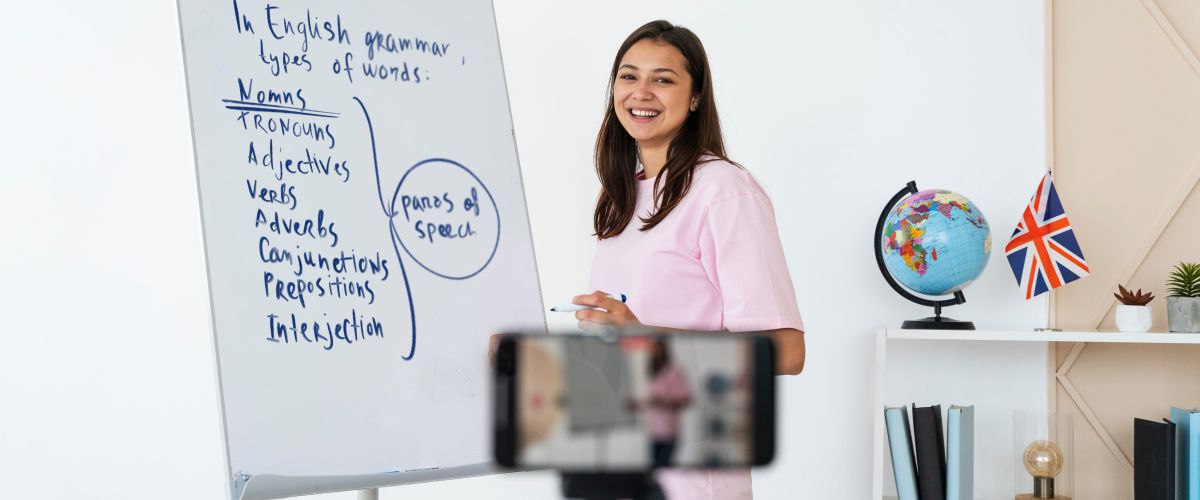 In English grammar,
types of words:
Nomns
PRONOUNS
Adjectives
Verbs
Adverbs
Conjunctions
Prepositions
Interjection
paras of
speech